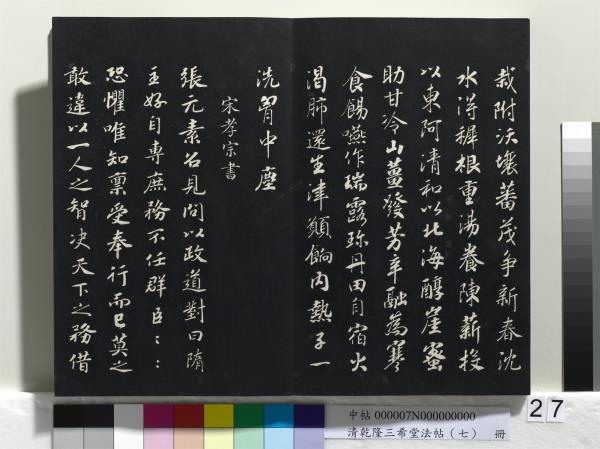 栽附沃壤蕃茂争新春沈
水得穉根重湯養陳薪投
以東阿清和以北海醇崖蜜
助甘冷山薑發芳辛融為寒
食餳嚥作瑞露珍丹田自宿火
渴肺還生津願餉內熱子一
洗胷中塵
宋孝宗書
張元素召見問以政道對曰隋
主好自專庶務不任群臣〻〻
恐懼唯知禀受奉行而已莫之
敢違以一人之智决天下之務借
中帖 000007N000000000
清乾隆三希堂法帖（七） 冊
27